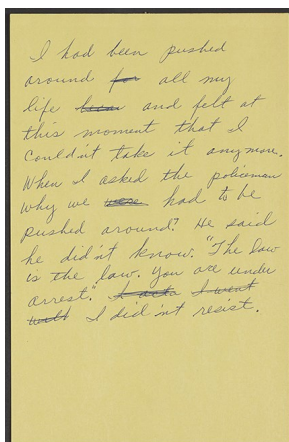 I had been pushed
around for all my
life been and felt at
this moment that I
couldn't take it anymore.
When I asked the policeman
why we were had to be
pushed around? He said
he didn't know. "The law
is the law. You are under
arrest." I went
I did'nt resist.